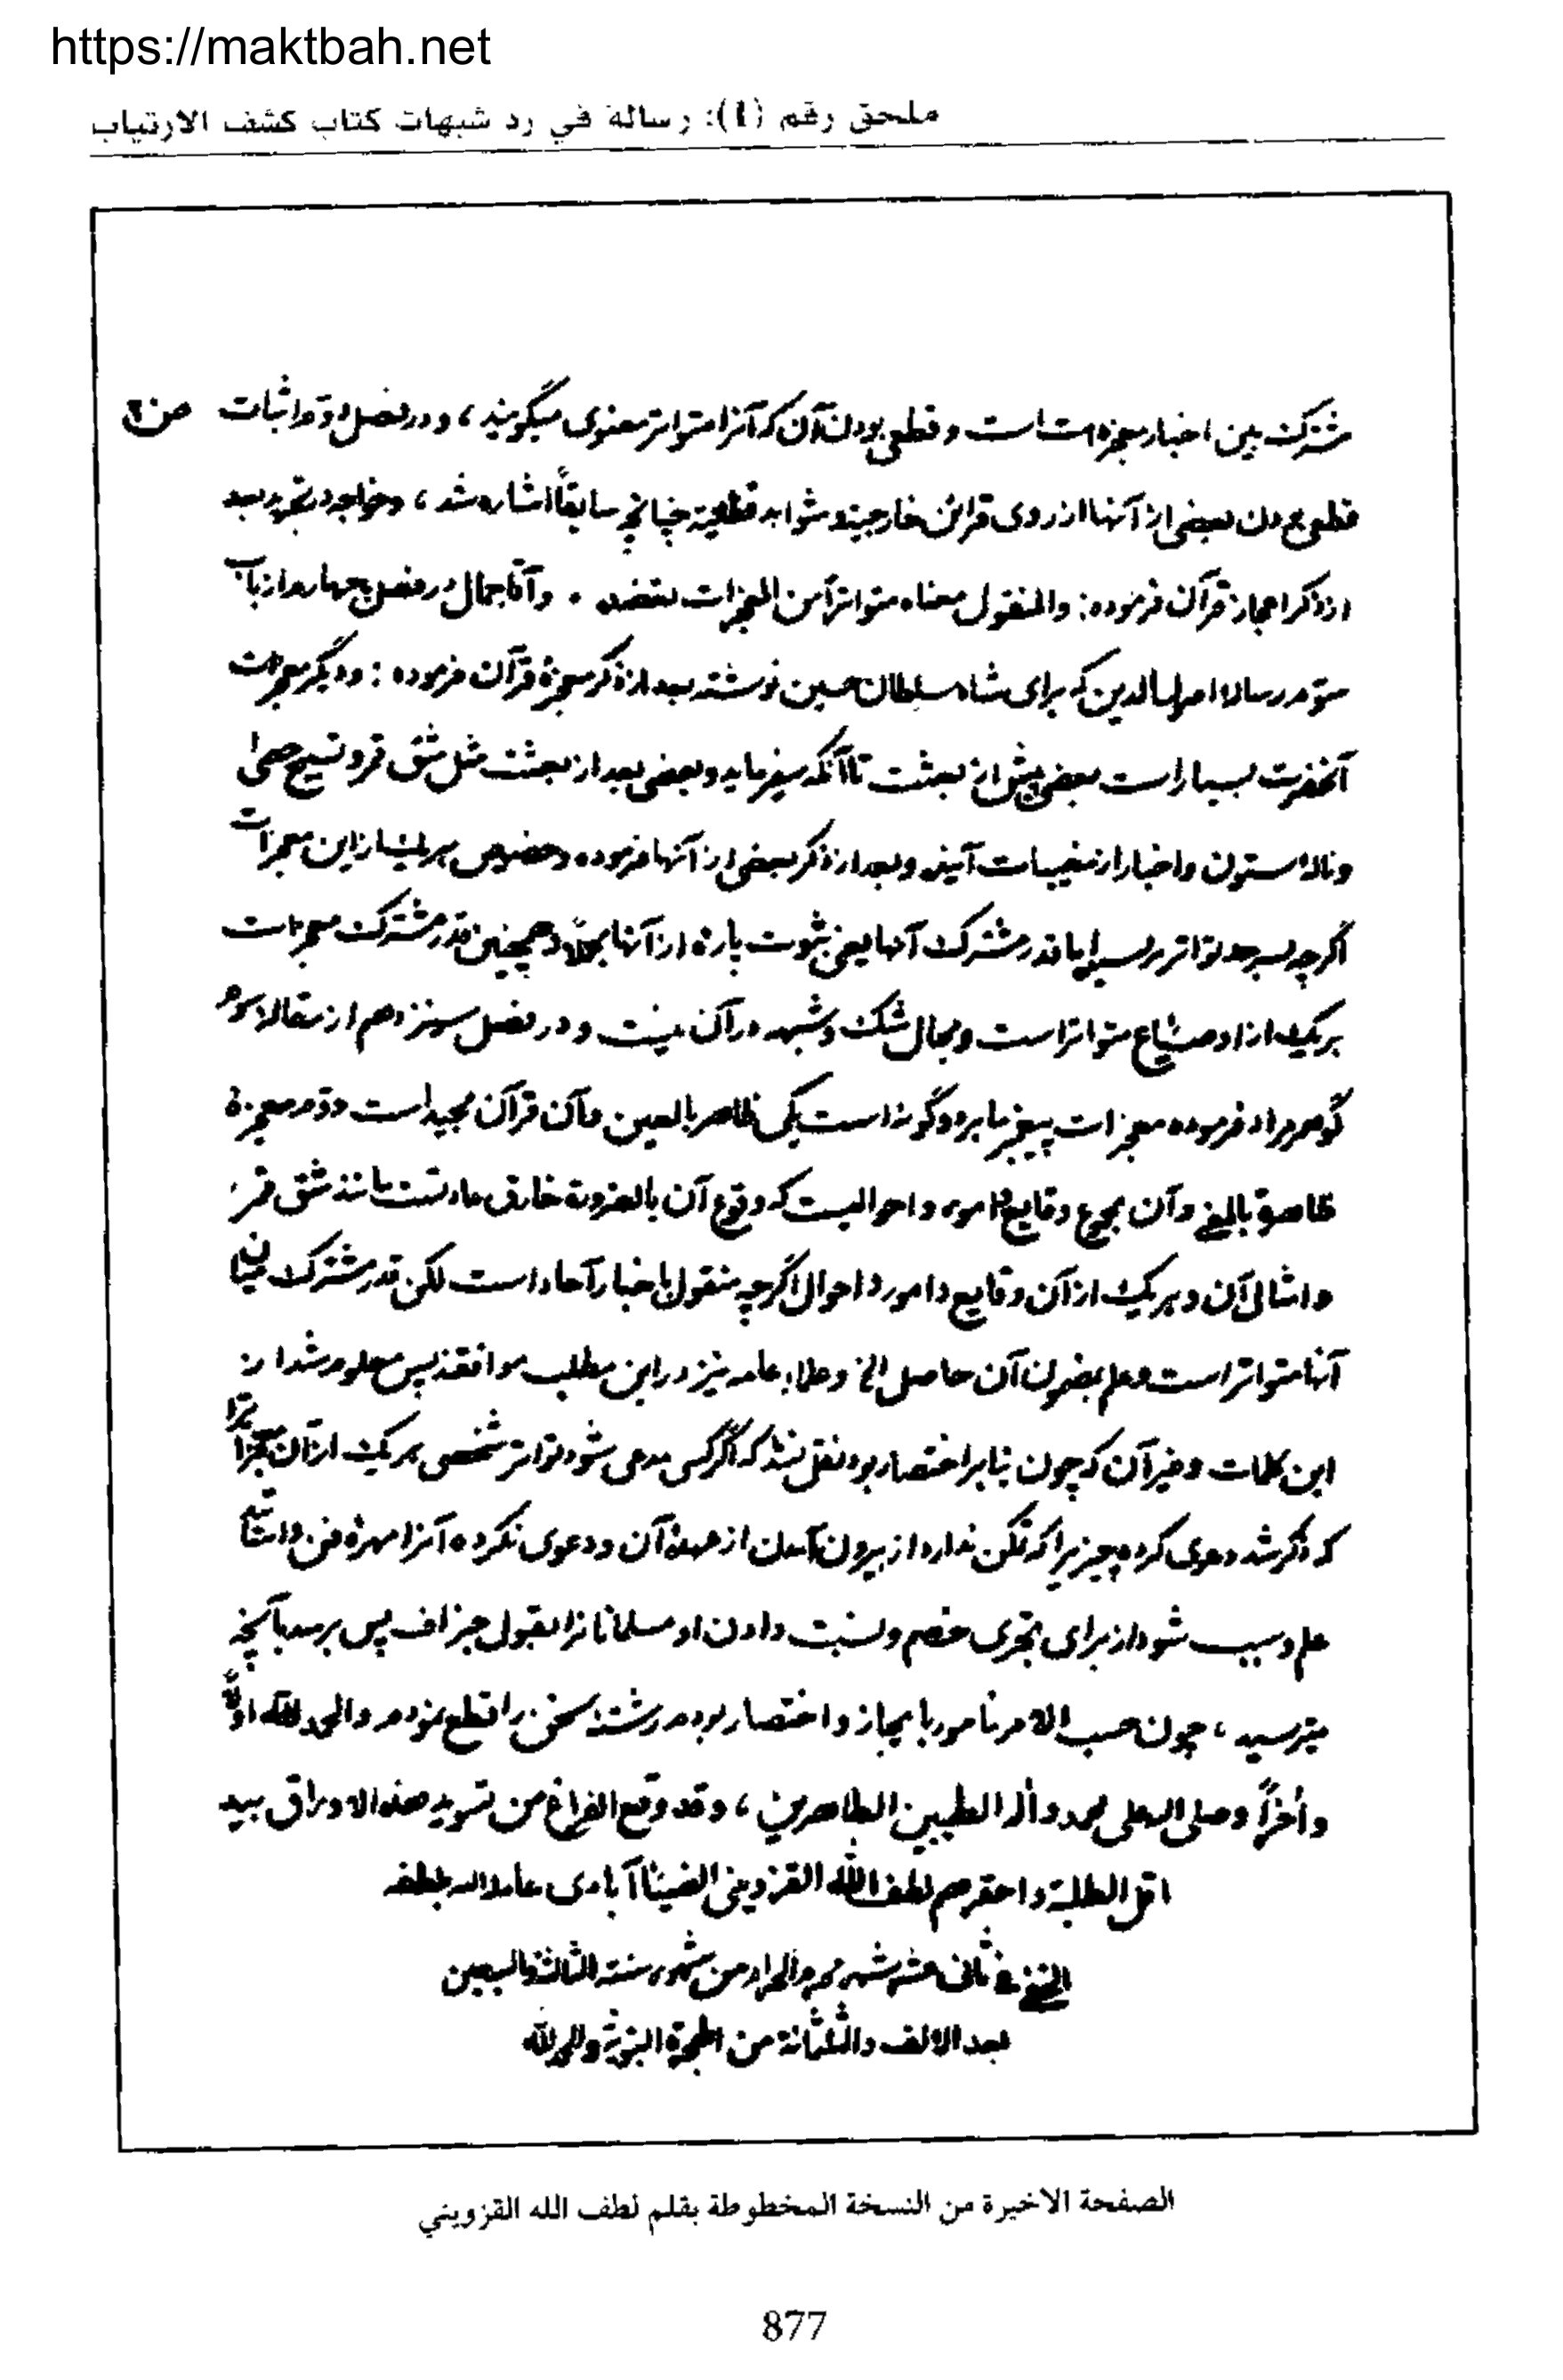 https://maktbah.net
ملحق رقم (1): رسالة في رد شبهات كتاب كشف الارتياب
مشترك بين اخبار معجزات است و قطعى بودن آن كه آنرا متواتر معنوى ميگويند ، و در فصل دوّم اثبات
قطعى بودن بعضى از آنها از روى قرائن خارجية و شواهد قطعية چنانچه سابقاً اشاره شد ، و خواجه در تجريد بعد
از ذكر اعجاز قرآن فرموده : والمنقول معناه متواتراً من المعجزات يعضده . وآقا جمال در فصل چهارم از باب
سوّم رساله اصول الدين كه براى شاه سلطان حسين نوشته بعد از ذكر معجزۀ قرآن فرموده : و ديگر معجزات
آنحضرت بسيار است بعضى پيش از بعثت تا آنكه ميفرمايد و بعضى بعد از بعثت مثل شق قمر و تسبيح حصى
و نالۀ ستون و اخبار از مغيبات آتيه و بعد از ذكر بعضى از آنها فرموده و خصوص هر يك از اين معجزات
اگر چه بسرحد تواتر نرسيده اما قدر مشترك آنها يعنى ثبوت پارۀ از آنها مجملاً و همچنين قدر مشترك معجزات
هر يك از اوصياء متواتر است و مجال شك و شبهه در آن نيست و در فصل سيزدهم از مقالۀ سوم
گوهر مراد فرموده معجزات پيغمبر ما بر دو گونه است يكى ظاهر بالعين و آن قرآن مجيد است دوّم معجزۀ
ظاهرة بالمعنى و آن مجموع وقايع و امور و احواليست كه وقوع آن بالضرورة خارق عادتست مانند شق قمر
و امثال آن و هر يك از آن وقايع و امور و احوال اگر چه منقول باخبار آحاد است لكن قدر مشترك ميان
آنها متواتر است و علم بمضمون آن حاصل الخ و علماء عامه نيز در اين مطلب موافقند پس معلوم شد از
اين كلمات و غير آن كه چون بنا بر اختصار بود نقل نشد كه اگر كسى مدعى شود تواتر شخصى هر يك از آن معجزات را
كه ذكر شد دعوى كرده چيزيرا كه تمكن ندارد از بيرون آمدن از عهدۀ آن و دعوى نكرده آنرا مهرۀ فن و اساتيد
علم و سبب شود از براى تجرى خصم و نسبت دادن او مسلمانانرا بقول جزاف پس برسد بآنچه
ميترسيد ، چون حسب الامر مأمور بايجاز و اختصار بودم رشتۀ سخن را قطع نمودم والحمد لله اولاً
وأخراً وصلى الله على محمد وآله الطيبين الطاهرين ، وقد وقع الفراغ من تسويد هذه الاوراق بيد
اقل الطلبة واحقرهم لطف الله القزوينى الضياءآبادى عامله الله بلطفه
الخفى فى ثانى عشر شهر محرم الحرام من شهور سنة الثالثة والسبعين
بعد الالف والثلثمائة من الهجرة النبوية والحمد لله
الصفحة الاخيرة من النسخة المخطوطة بقلم لطف الله القزويني
877